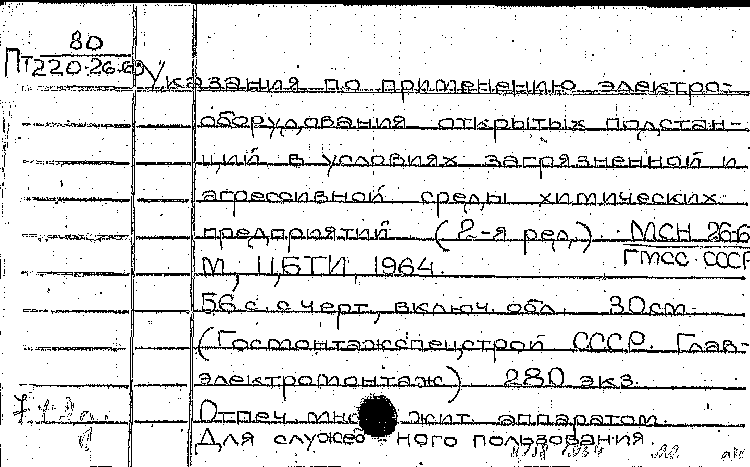 80
Пт220-26.69
Указания по применению электро-
оборудования открытых подстан-
ций в условиях загрязненной и
агрессивной среды химических
предприятий (2-я ред.) МСН 26-6
ГМСС СССР
М, ЦБТИ, 1964.
56 с. с черт., включ. обл. 30см.
(Госмонтажспецстрой СССР. Глав-
электромонтаж) 280 экз.
Отпеч. мно жит. аппаратом.
Для служеб ного пользования.